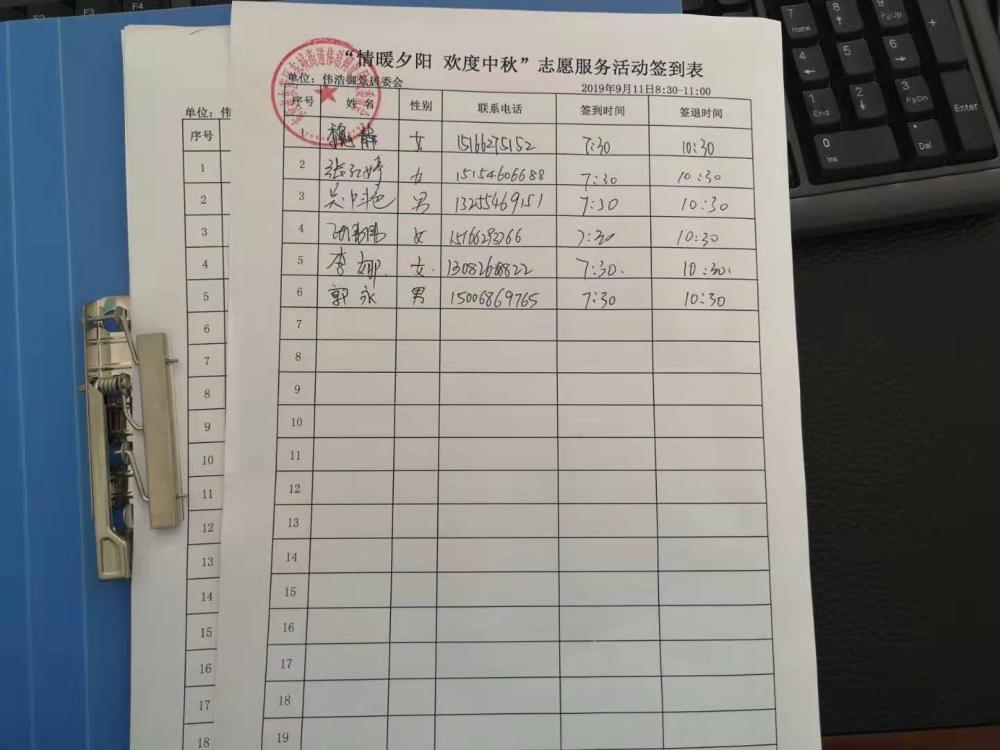 “情暖夕阳 欢度中秋”志愿服务活动签到表
单位：伟浩御景居委会 2019年9月11日8:30-11:00
序号 姓名 性别 联系电话 签到时间 签退时间
魏静 女 15166275152 7:30 10:30
2 张红婷 女 15154606688 7:30 10:30
3 男 13255469151 7:30 10:30
4 女 7:30 10:30
5 李娜 女 13082688822 7:30 10:30
6 郭永 男 15006869765 7:30 10:30
7
8
9
10
11
12
13
14
15
16
17
18
19
单位：伟
序号
1
2
3
4
5
6
7
8
9
10
11
12
13
14
15
16
17
18
F3 F4
7 Home
8
9 PgUp
+
4
5
6
1 End
2
3 PgDn
Enter
0 Ins
. Del